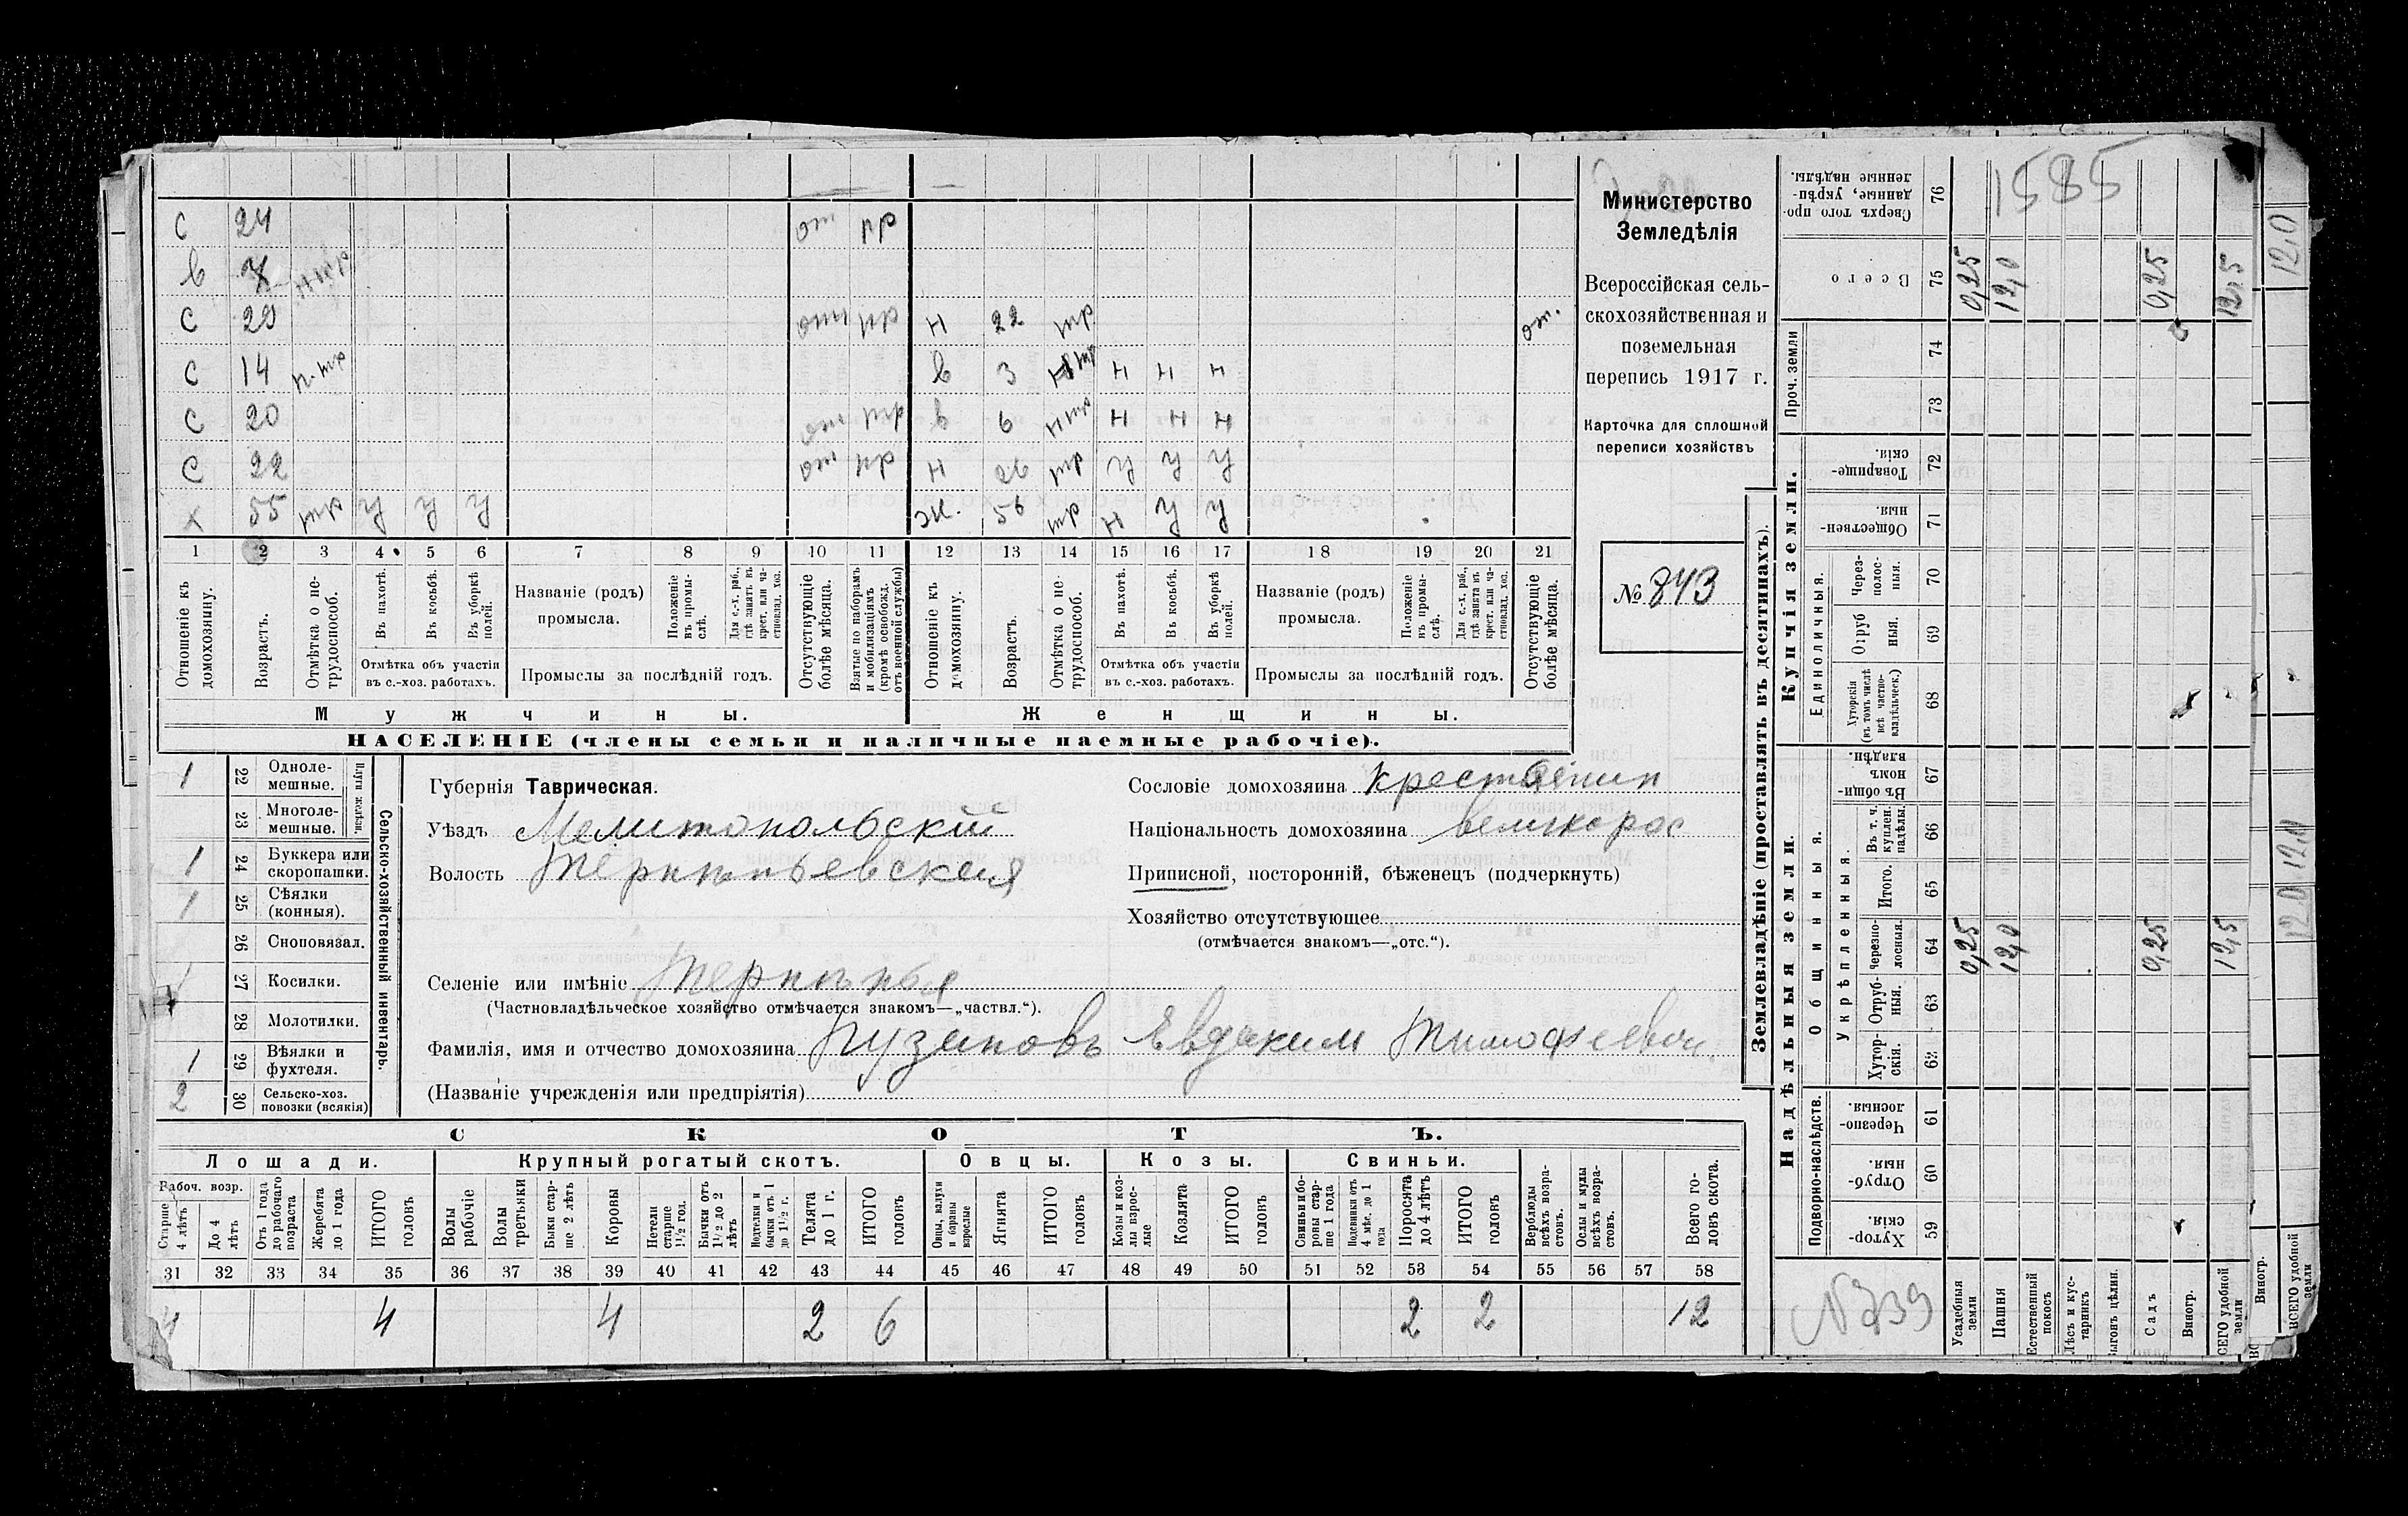 С 24 от пр
в нтр
С 29 отп пр Н 22 тр от.
С 14 п.тр в 3 нтр н н н
С 20 от пр в 6 нтр н н н
С 22 от пр Н 26 тр У У У
Х 55 тр У У У Ж. 56 тр Н У У
1 2 3 4 5 6 7 8 9 10 11 12 13 14 15 16 17 18 19 20 21
Отношеніе къ домохозяину.
Возрастъ.
Отмѣтка о нетрудоспособ.
Въ пахотѣ.
Въ косьбѣ.
Въ уборкѣ полей.
Отмѣтка объ участіи
въ с.-хоз. работахъ.
Названіе (родъ)
промысла.
Положеніе въ промыслѣ.
Для с.-х. раб., гдѣ занятъ въ крест. или частновлад. хоз.
Промыслы за послѣдній годъ.
Отсутствующіе болѣе мѣсяца.
Взятые по наборамъ и мобилизаціямъ (кромѣ освобожд. отъ военной службы)
Отношеніе къ домохозяину.
Возрастъ.
Отмѣтка о нетрудоспособ.
Въ пахотѣ.
Въ косьбѣ.
Въ уборкѣ полей.
Отмѣтка объ участіи
въ с.-хоз. работахъ.
Названіе (родъ)
промысла.
Положеніе въ промыслѣ.
Для с.-х. раб., гдѣ занята въ крест. или частновлад. хоз.
Промыслы за послѣдній годъ.
Отсутствующіе болѣе мѣсяца.
Мужчины. Женщины.
НАСЕЛЕНІЕ (члены семьи и наличные наемные рабочіе).
Министерство
Земледѣлія
Всероссійская сель-
скохозяйственная и
поземельная
перепись 1917 г.
Карточка для сплошной
переписи хозяйствъ
№ 843
Сельско-хозяйственный инвентарь.
Плуги желѣзн.
1 22 Однолемешные.
23 Многолемешные.
1 24 Буккера или скоропашки.
1 25 Сѣялки (конныя).
26 Сноповязал.
27 Косилки.
28 Молотилки.
1 29 Вѣялки и фухтеля.
2 30 Сельско-хоз. повозки (всякія)
Губернія Таврическая.
Уѣздъ Мелитопольскій
Волость Терпѣньевская
Селеніе или имѣніе Терпѣнья
(Частновладѣльческое хозяйство отмѣчается знакомъ—„частвл.“).
Фамилія, имя и отчество домохозяина Пузановъ Евдокимъ Тимофеевич.
(Названіе учрежденія или предпріятія)
Сословіе домохозяина крестьянин
Національность домохозяина великорос
Приписной, посторонній, бѣженецъ (подчеркнуть)
Хозяйство отсутствующее
(отмѣчается знакомъ—„отс.“).
СКОТЪ.
Лошади. Крупный рогатый скотъ. Овцы. Козы. Свиньи.
Рабоч. возр.
Старше 4 лѣтъ
До 4 лѣтъ
Отъ 1 года до рабочаго возраста
Жеребята до 1 года
ИТОГО головъ
Волы рабочіе
Волы третьяки
Быки старше 2 лѣтъ
Коровы
Нетели старше 1½ год.
Бычки отъ 1½ до 2 лѣтъ
Подтелки и бычки отъ 1 до 1½ г.
Телята до 1 г.
ИТОГО головъ
Овцы, валухи и бараны взрослые
Ягнята
ИТОГО головъ
Козы и козлы взрослые
Козлята
ИТОГО головъ
Свиньи и боровы старше 1 года
Подсвинки отъ 4 мѣс. до 1 года
Поросята до 4 лѣтъ
ИТОГО головъ
Верблюды всѣхъ возрастовъ.
Ослы и мулы всѣхъ возрастовъ.
Всего головъ скота.
31 32 33 34 35 36 37 38 39 40 41 42 43 44 45 46 47 48 49 50 51 52 53 54 55 56 57 58
4 4 4 2 6 2 2 12
Землевладѣніе (проставлять въ десятинахъ).
Надѣльныя земли. Купчія земли.
Подворно-наслѣдств. Общинныя. Укрѣпленныя. Единоличныя. Проч. земли
Хуторскія. 59
Отрубныя. 60
Черезполосныя. 61
Хуторскія. 62
Отрубныя. 63
Черезполосныя. 64
Итого. 65
Въ т. ч. куплен. надѣлы 66
Въ общинномъ владѣн. 67
Хуторскія (въ томъ числѣ всѣ частновладѣльческ.) 68
Отрубныя. 69
Черезполосныя. 70
Общественныя. 71
Товарищескія. 72
73
74
Всего 75
Сверхъ того проданные, укрѣпленные надѣлы. 76
Усадебныя земли 0,25 0,25
Пашня 12,0 12,0
Естественный покосъ
Лѣсъ и кустарникъ
Выгонъ цѣлин.
Садъ 0,25 0,25
Виногр.
ВСЕГО удобной земли 12,5 12,5
1585
Виногр.
ВСЕГО удобной земли
12,0 12,0
12,0